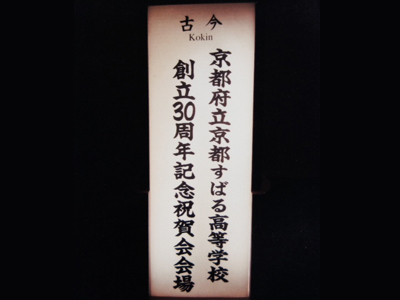 古今
Kokin
京都府立京都すばる高等学校
創立30周年記念祝賀会会場